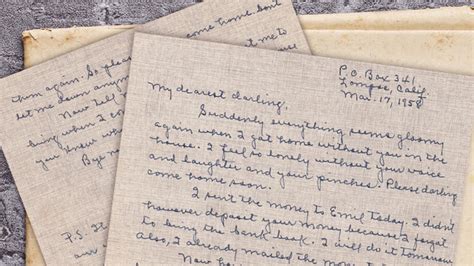 come home don't
them again. So pleas
me to
let me down anym
Now tell
bring when I co
you know wh
Bye
P.S. It
P.O. Box 341
Lompoc, Calif.
Mar. 17, 1958
My dearest darling.
Suddenly everything seems gloomy
again when I got home without you in the
house. I feel so lonely without your voice
and laughter and your pinches. Please darling
come home soon.
I sent the money to Emil today. I didn't
however deposit your money because I forgot
to bring the bank book. I will do it tomorrow
Also, I already mailed the mo
Now ho